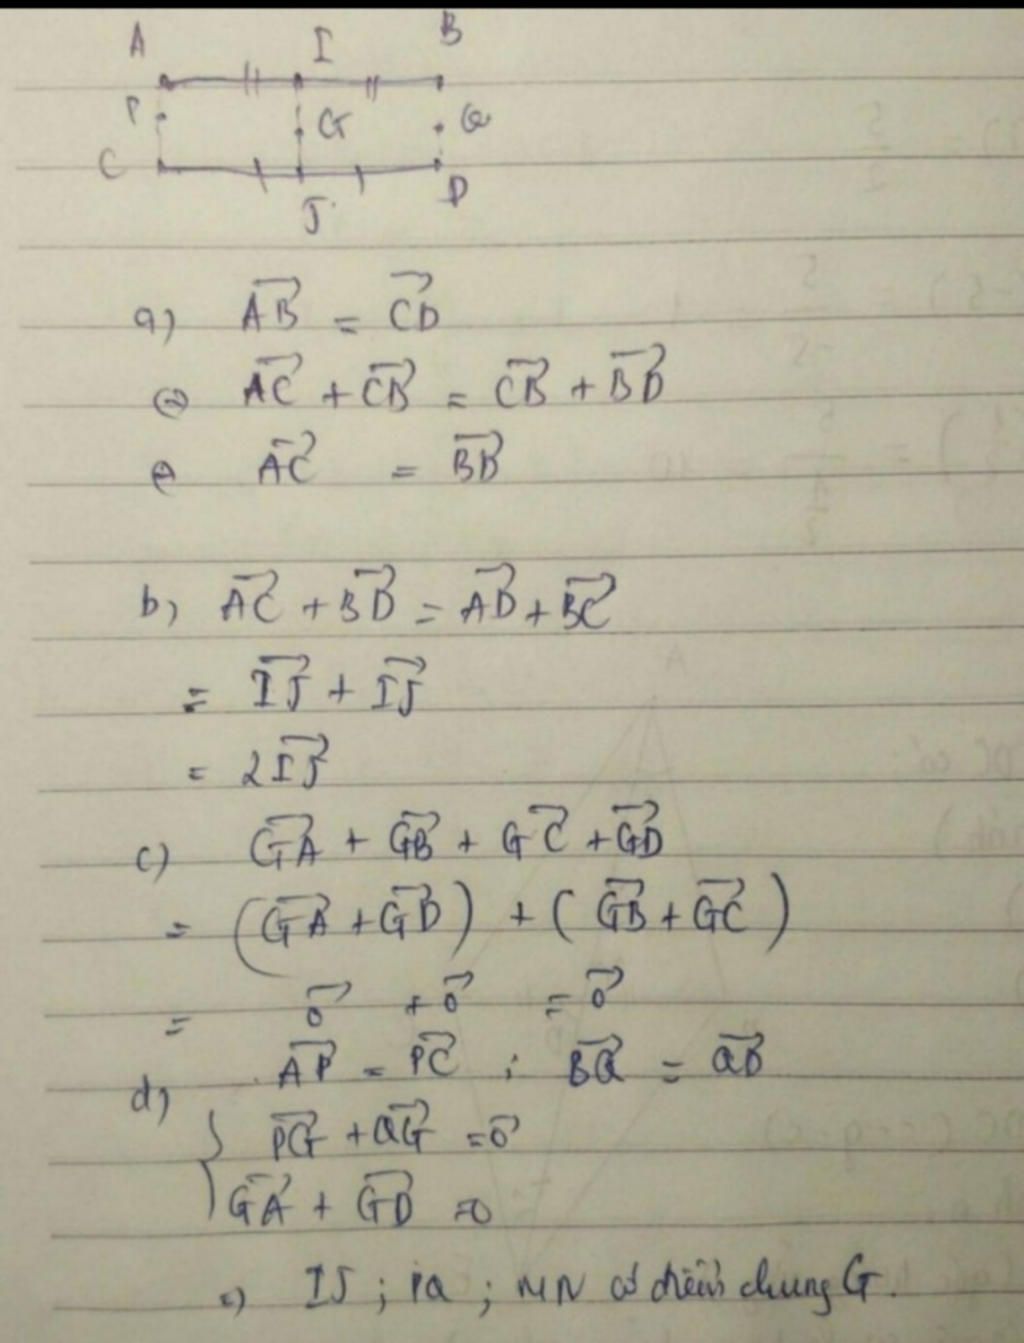 A I B
P G Q
C J D
a) $\overrightarrow{AB} = \overrightarrow{CD}$
⇔ $\overrightarrow{AC} + \overrightarrow{CB} = \overrightarrow{CB} + \overrightarrow{BD}$
⇔ $\overrightarrow{AC} = \overrightarrow{BD}$
b) $\overrightarrow{AC} + \overrightarrow{BD} = \overrightarrow{AD} + \overrightarrow{BC}$
= $\overrightarrow{IJ} + \overrightarrow{IJ}$
= $2\overrightarrow{IJ}$
c) $\overrightarrow{GA} + \overrightarrow{GB} + \overrightarrow{GC} + \overrightarrow{GD}$
= $(\overrightarrow{GA} + \overrightarrow{GD}) + (\overrightarrow{GB} + \overrightarrow{GC})$
= $\overrightarrow{0} + \overrightarrow{0} = \overrightarrow{0}$
d) $\overrightarrow{AP} = \overrightarrow{PC}$ ; $\overrightarrow{BQ} = \overrightarrow{QD}$
{ $\overrightarrow{PG} + \overrightarrow{QG} = \overrightarrow{0}$
$\overrightarrow{GA} + \overrightarrow{GD} = 0$
=> IJ ; PQ ; MN có điểm chung G.